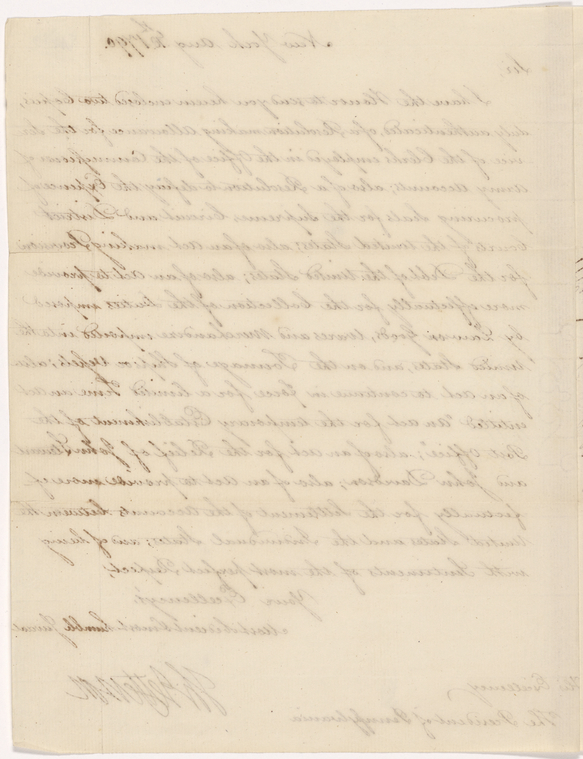 New York Aug 1790.
Sir,
I have the Honor to send you herein enclosed two Copies,
duly authenticated, of a Resolution making allowance for the Ser
vice of the Clerks employed in the Office of the Commissioner of
Army Accounts; also of a Resolution to defray the Expence of
procuring Seals for the Supreme, Circuit and District
Courts of the United States; also of an act making Provision
for the Debt of the United States; also of an act to provide
more effectually for the Collection of the Duties imposed
by Law on Goods, Wares and Merchandize imported into the
United States, and on the Tonnage of Ships or Vessels; also
of an act to continue in force for a limited Time an act
intitled "an act for the temporary Establishment of the
Post Office"; also of an act for the Relief of John Stewart
and John Davidson; also of an act to provide more ef
fectually for the Settlement of the accounts between the
United States and the Individual States; and of being
with Sentiments of the most perfect Respect,
Your Excellency's
most obedient & most humble Servant
Th: Jefferson
His Excellency
The President of Pennsylvania